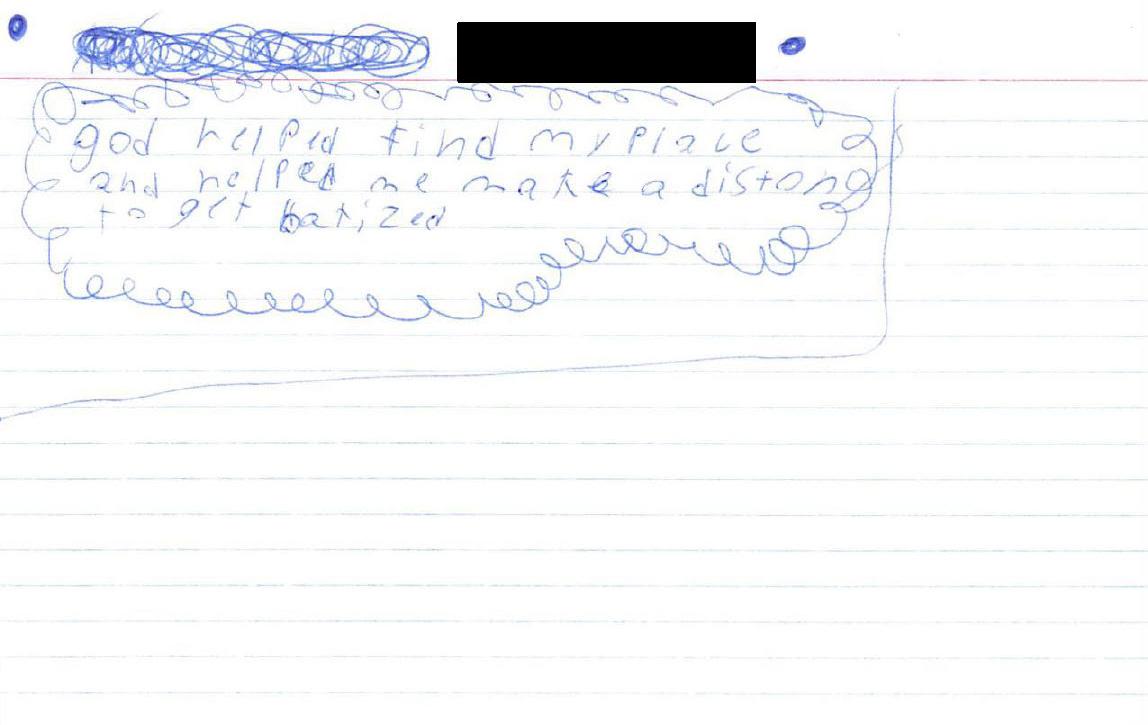 god helped find my place
and helped me make a distong
to get batized